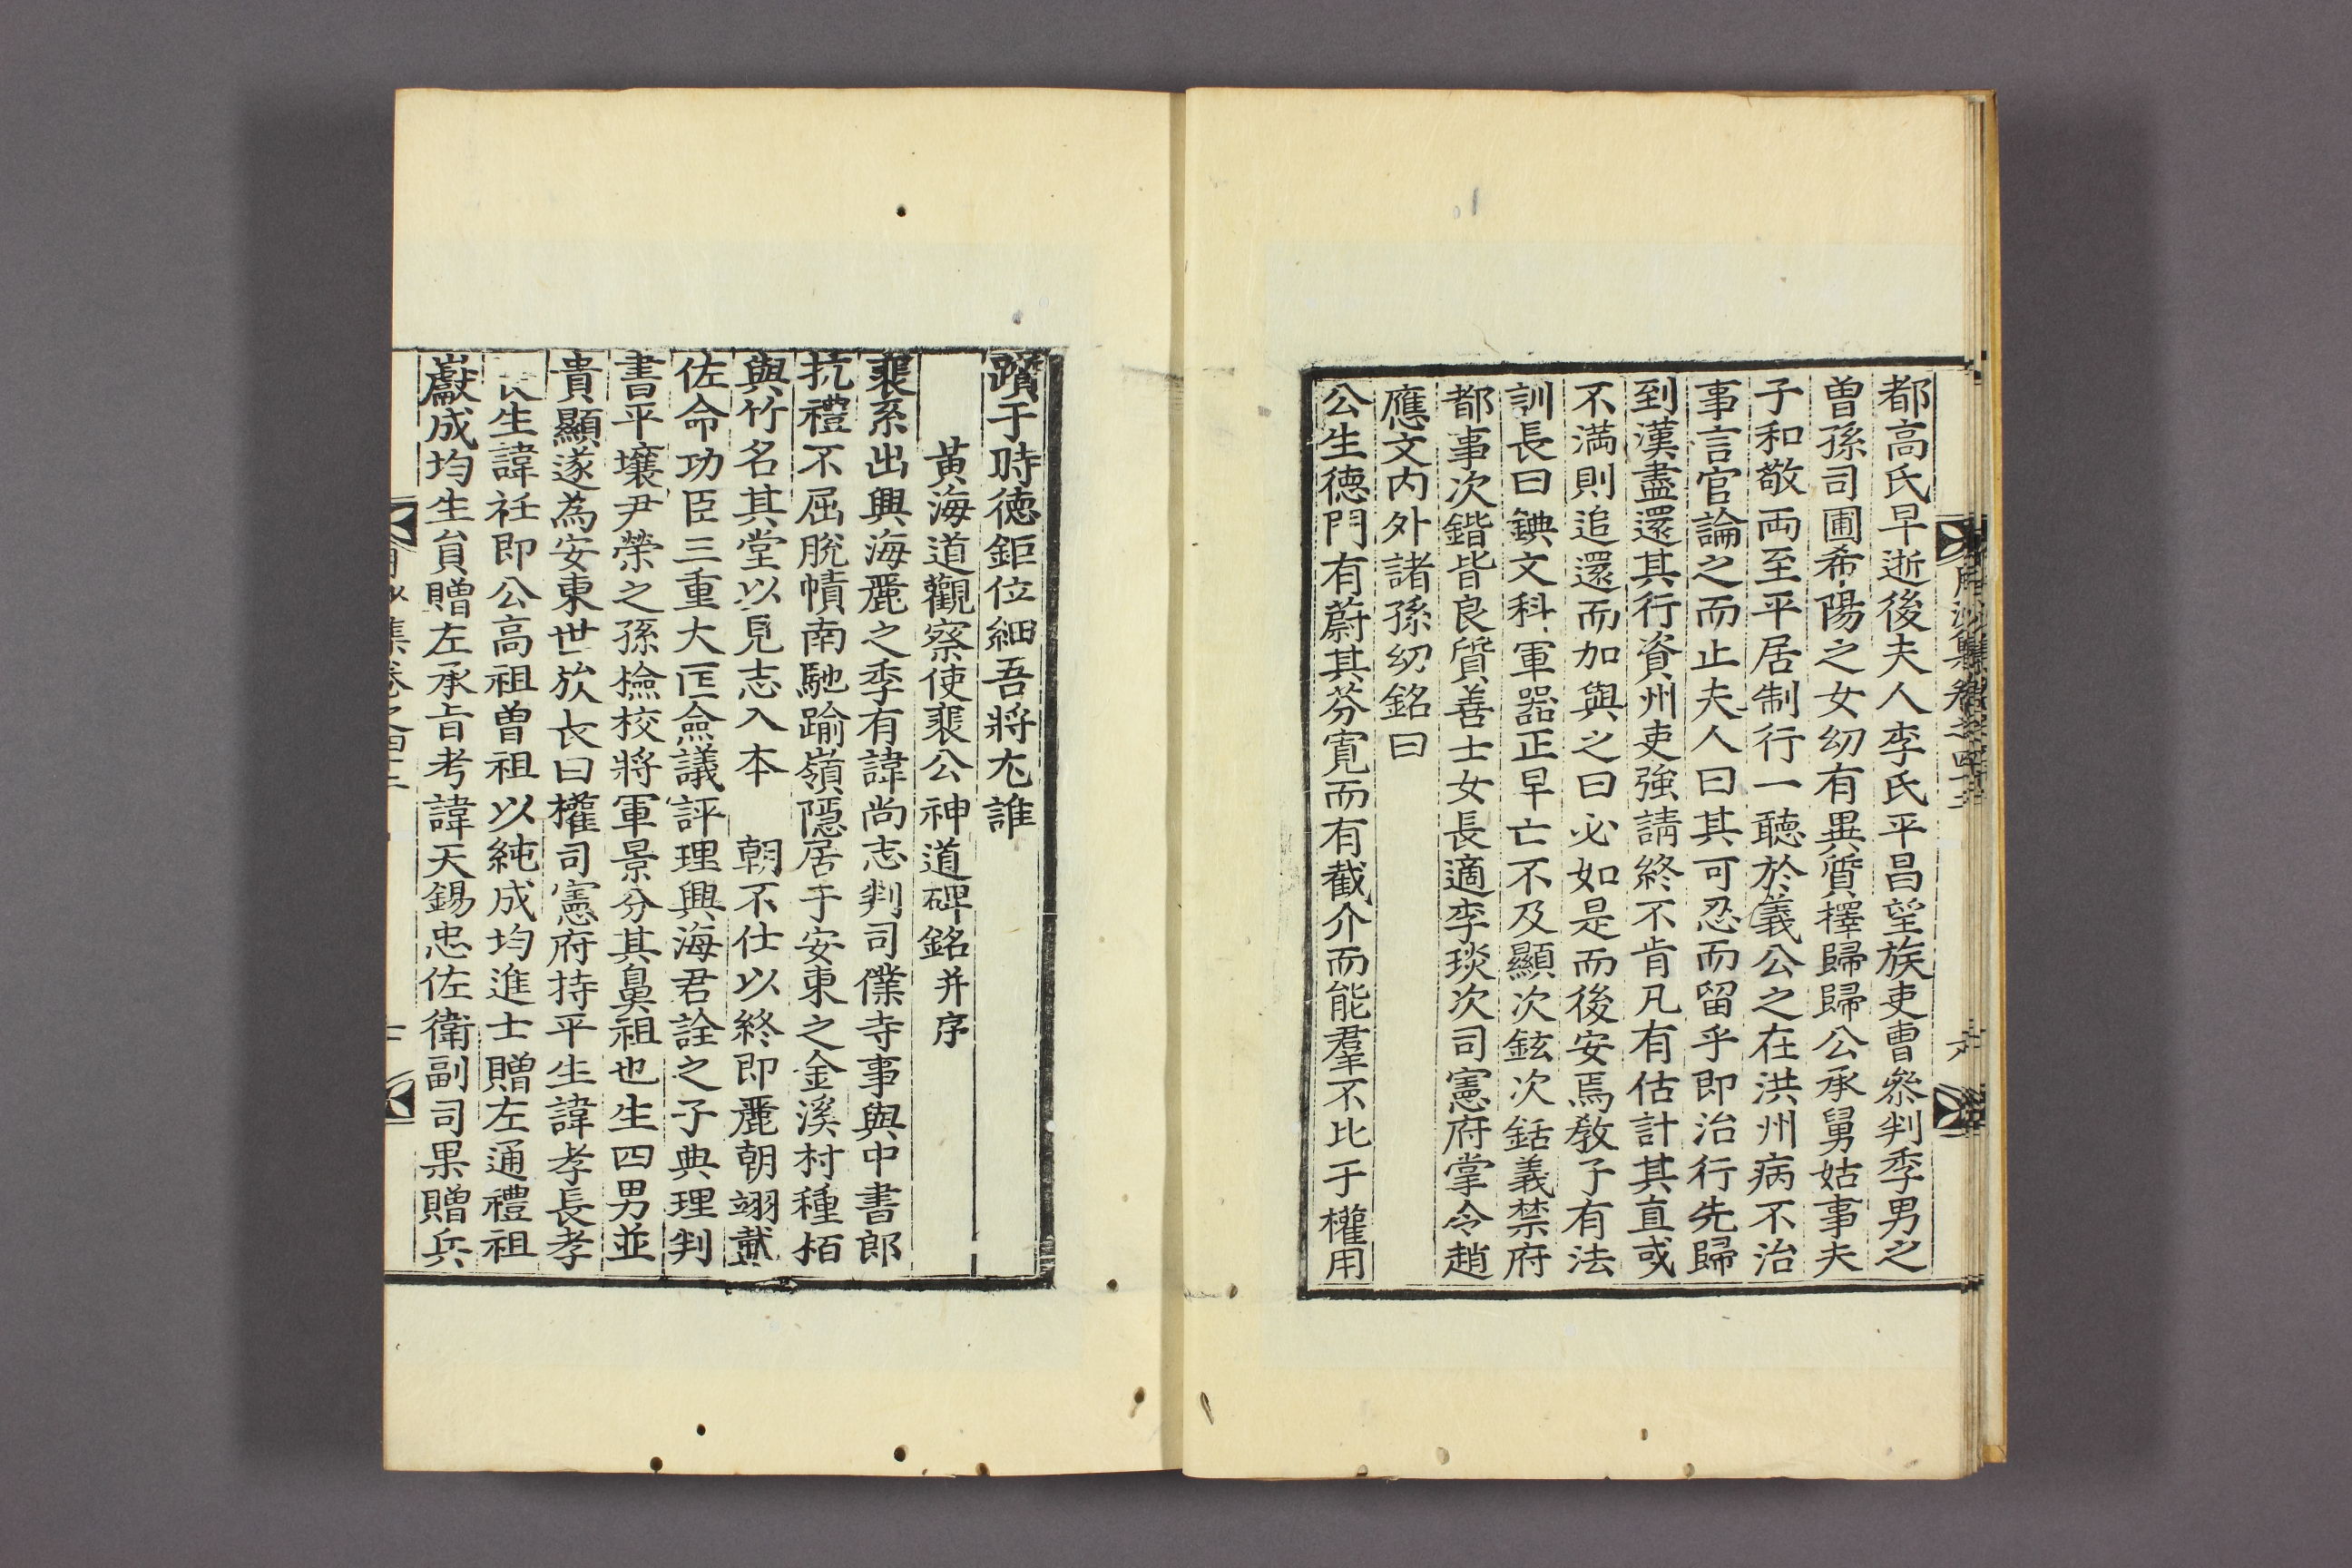 都高氏早逝後夫人李氏平昌望族吏曹叅判季男之
曽孫司圃希陽之女幼有異質擇歸歸公承舅姑事夫
子和敬両至平居制行一聽於義公之在洪州病不治
事言官論之而止夫人曰其可忍而留乎即治行先歸
到漢盡還其行資州吏強請終不肯凡有估計其直或
不満則追還而加與之曰必如是而後安焉教子有法
訓長曰錪文科軍器正早亡不及顯次鉉次銛義禁府
都事次鍇皆良質善士女長適李琰次司憲府掌令趙
應文内外諸孫幼銘曰
公生徳門有蔚其芬寛而有截介而能羣不比于權用
躓于時徳鉅位細吾將尤誰
黃海道觀察使裴公神道碑銘并序
裴系出興海麗之季有諱尚志判司僕寺事與中書郎
抗禮不屈脫幘南馳踰嶺隱居于安東之金溪村種栢
與竹名其堂以見志入本 朝不仕以終即麗朝翊戴
佐命功臣三重大匡僉議評理興海君詮之子典理判
書平壤尹榮之孫檢校將軍景分其鼻祖也生四男並
貴顯遂為安東世族長曰權司憲府持平生諱孝長孝
長生諱衽即公高祖曽祖以純成均進士贈左通禮祖
巘成均生員贈左承旨考諱天錫忠佐衛副司果贈兵